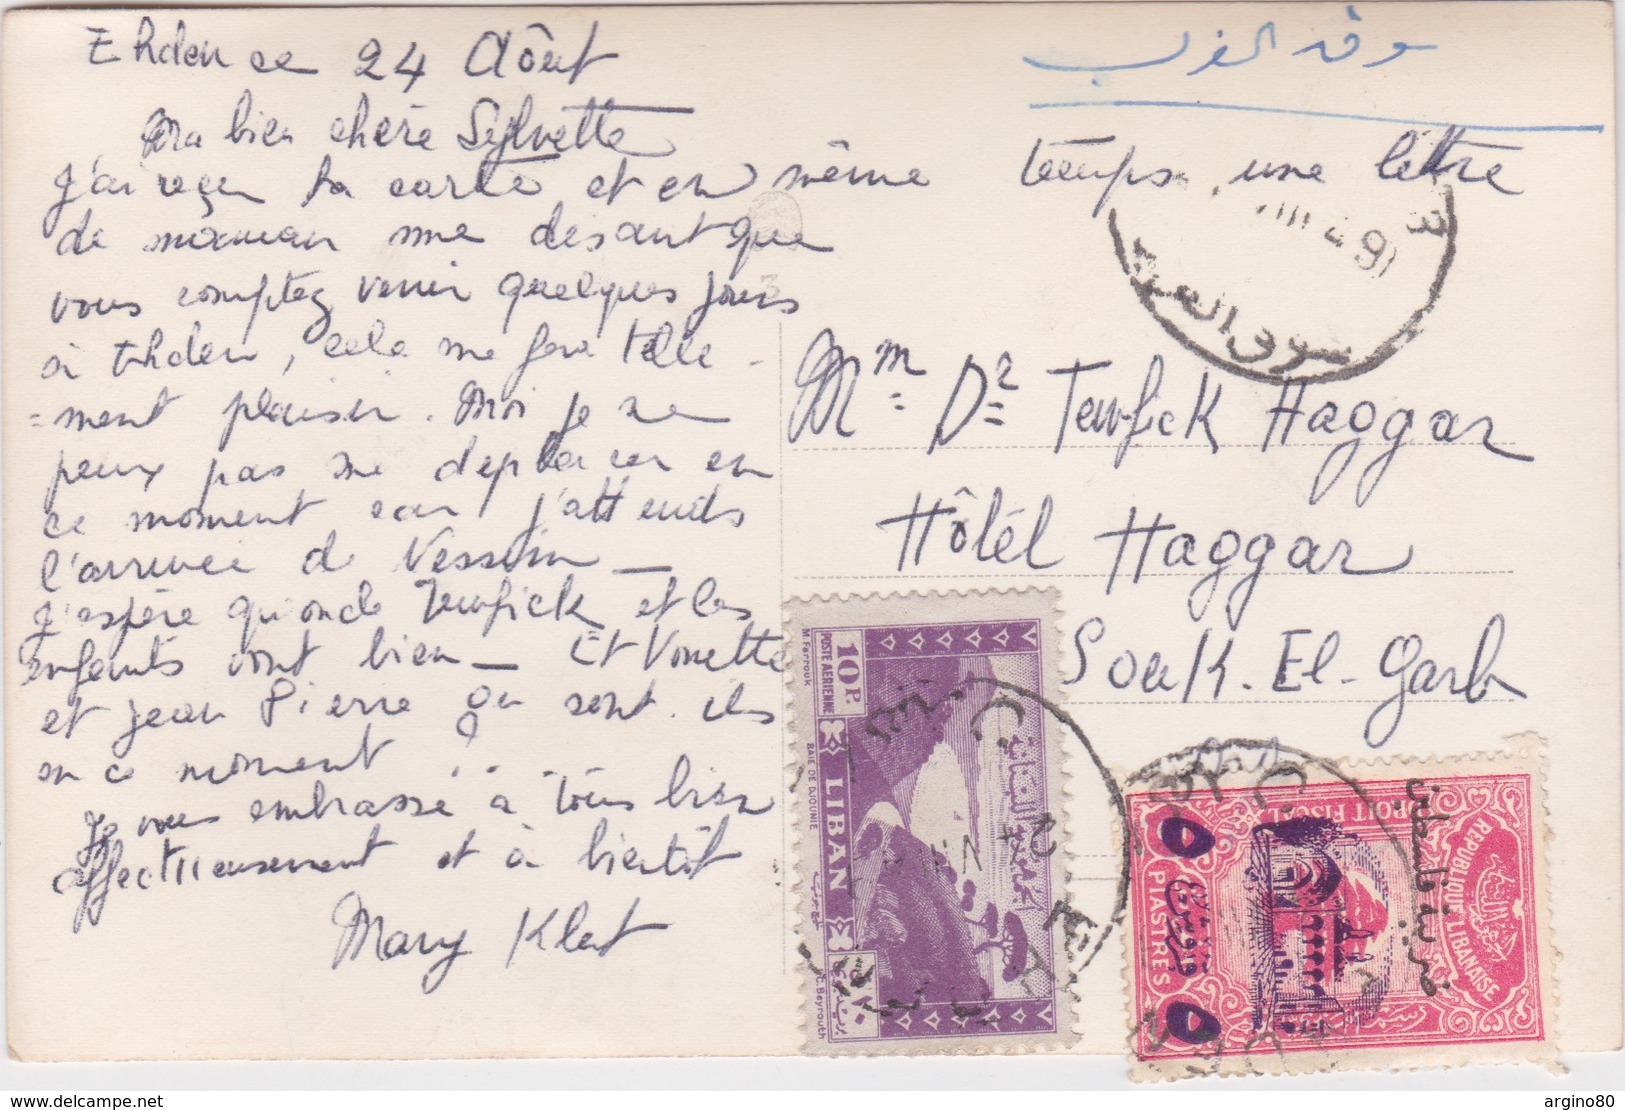 Ehden ce 24 Aôut
سوق الغرب
Ma bien chère Sylvette
J'ai reçu ta carte et en même temps une lettre
de maman me disant que
vous comptez venir quelques jours
à Ehden, cela me fera telle-
=ment plaisir. Moi je ne
peux pas me déplacer en
ce moment car j'attends
l'arrivée de
J'espère qu'oncle Tewfick et les
enfants vont bien _ Et
et Jean Pierre où sont ils
en ce moment ?..
Je vous embrasse à tous bien
affectueusement et à bientôt
Mary Klat
Mm D2 Tewfick Haggar
Hôtêl Haggar
Souk-El-Garb
سوق الغرب
10 P.
POSTE AÉRIENNE
LIBAN
M. Farrouk
BAIE DE DJOUNIE
C. Beyrouth
RÉPUBLIQUE LIBANAISE
DROIT FISCAL
ضريبة فلسطين
5 PIASTRES 5
delcampe.net
argino80